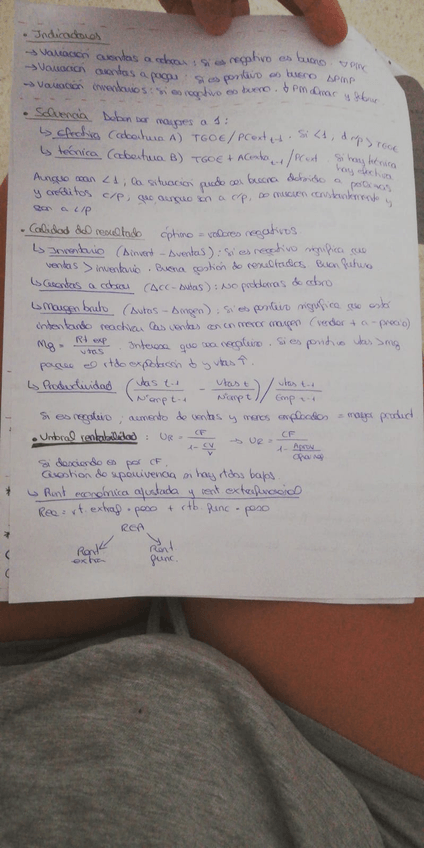 • Indicadores
→ Variación cuentas a cobrar: Si es negativo es bueno ▽PMC
→ Variación cuentas a pagar: Si es positivo es bueno ΔPMP
→ Variación inventarios: si es negativo es bueno. ↓ PM almac y
• Solvencia Deben ser mayores a 1:
↳ efectiva (cobertura A) TGOE/PCext t-1. Si <1,
↳ técnica (cobertura B) TGOE + ACexto t-1/PCext Si hay técnica hay efectiva
Aunque sean <1, la situación puede ser buena debido a préstamos
y créditos c/p, que aunque son a c/p, se renuevan constantemente y
son a l/p
• Calidad del resultado óptimo = valores negativos
↳ Inventario (Δinvent - Δventas): Si es negativo significa que
ventas > inventario. Buena gestión de resultados. Buen futuro
↳ Cuentas a cobrar (ΔCC - Δvtas): No problemas de cobro
↳ Margen bruto (Δvtas - Δmgen). Si es positivo significa que está
intentando reactivar las ventas con un menor margen (vender + a - precio)
Mg = Rt exp / vtas. Interesa que sea negativo. Si es positivo vtas > mg
porque el rtdo explotación ↓ y vtas ↑.
↳ Productividad (vtas t-1 / Nºemp t-1 - vtas t / Nºemp t) / vtas t-1 / emp t-1
Si es negativo, aumento de ventas y menos empleados = mayor product
• Umbral rentabilidad: UR = CF / 1 - CV/V → UR = CF / 1 - Aprov
Si desciende es por CF.
Cuestión de supervivencia si hay rtdos bajos
↳ Rent económica ajustada y rent extrafuncional
REA = rt. extraf · peso + rtb. func · peso
REA
Rent extra Rent func.